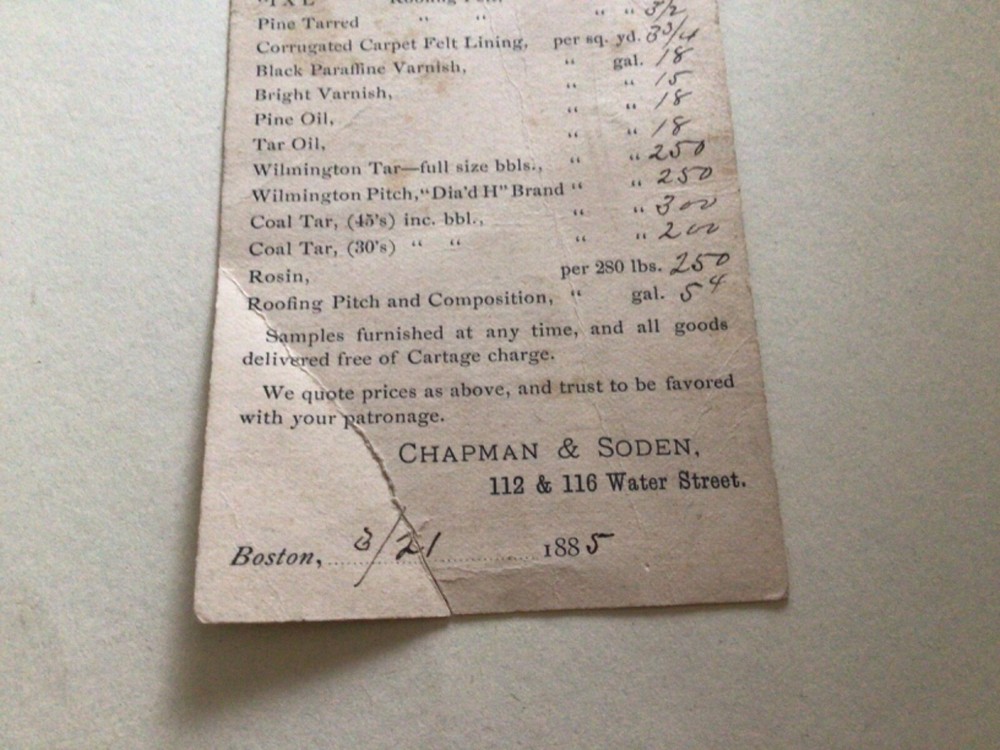 "IXL" Roofing Felt, " "
Pine Tarred " " " " 3½
Corrugated Carpet Felt Lining, per sq. yd. 3¾
Black Paraffine Varnish, " gal. 18
Bright Varnish, " " 15
Pine Oil, " " 18
Tar Oil, " " 18
Wilmington Tar—full size bbls., " " 250
Wilmington Pitch, "Dia'd H" Brand " " 250
Coal Tar, (45's) inc. bbl., " " 300
Coal Tar, (30's) " " " " 200
Rosin, per 280 lbs. 250
Roofing Pitch and Composition, " gal. 5 4
Samples furnished at any time, and all goods
delivered free of Cartage charge.
We quote prices as above, and trust to be favored
with your patronage.
CHAPMAN & SODEN,
112 & 116 Water Street.
Boston, 3/21 1885